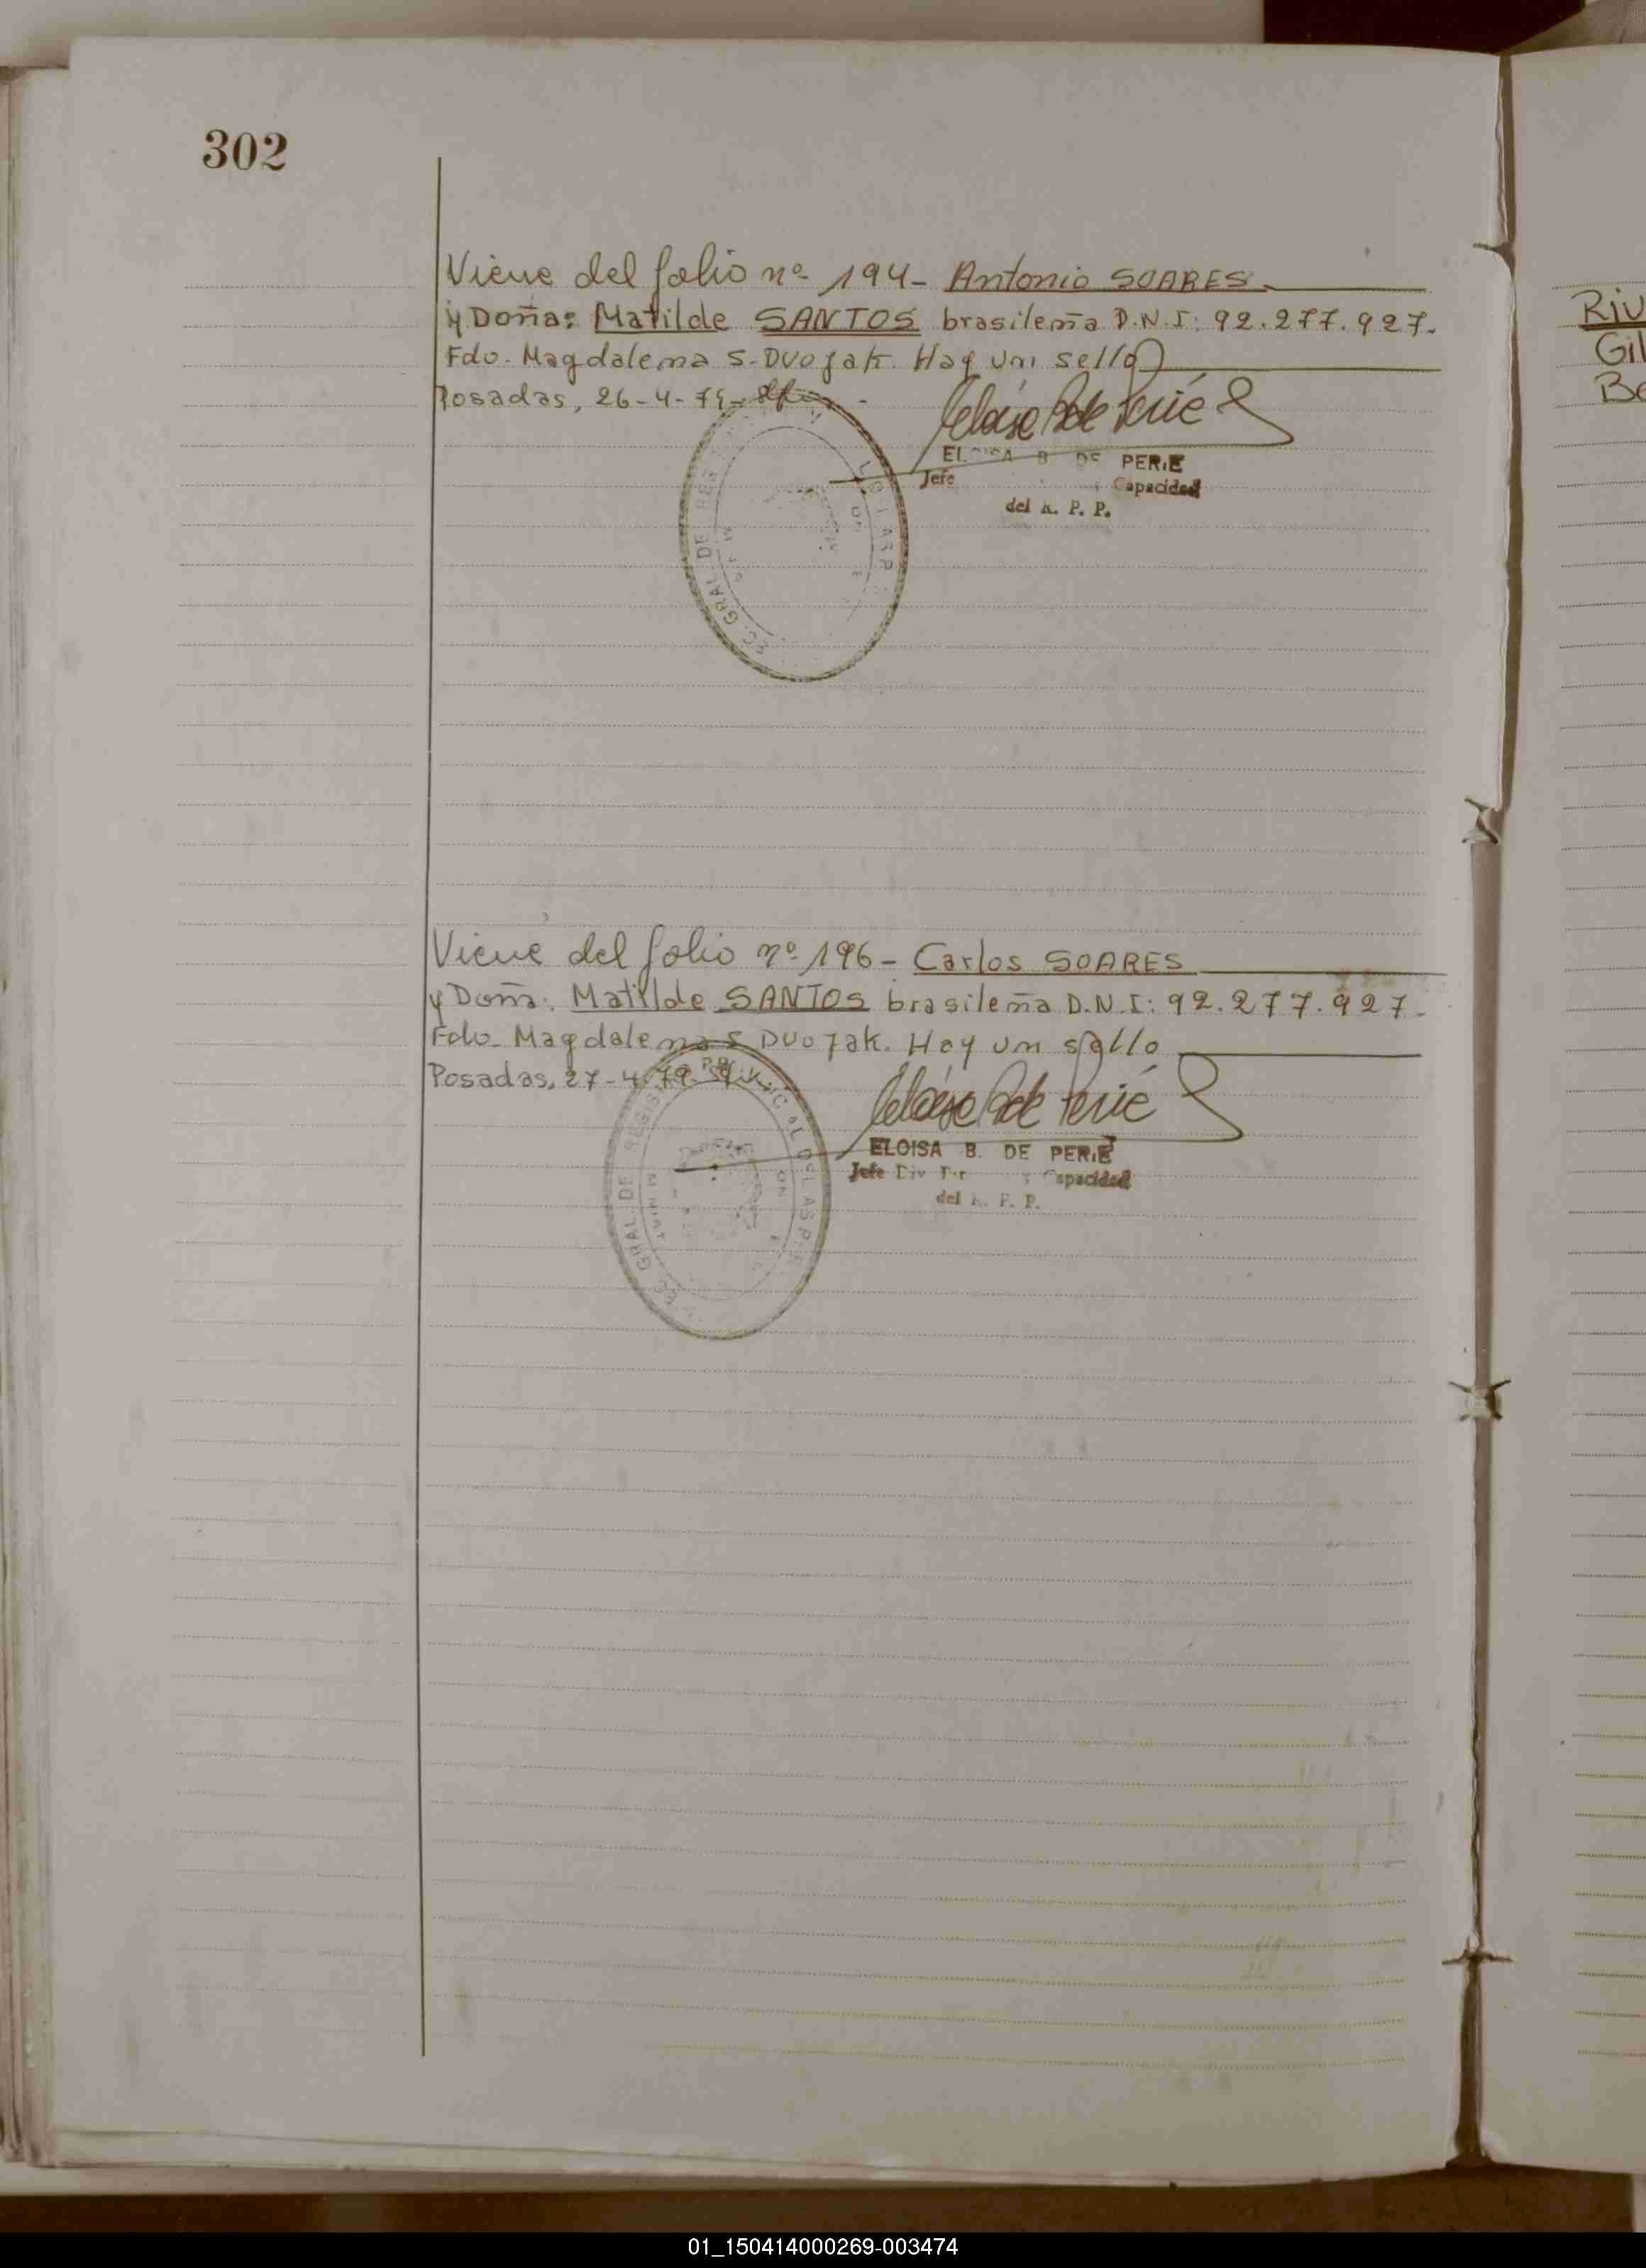 302
Viene del folio nº 194- Antonio SOARES
y Doña: Matilde SANTOS brasileña D.N.I: 92.277.927.
Fdo. Magdalena S. Dvojak. Hay un sello
Posadas, 26-4-79-
ELOISA B. DE PERIE
Jefe Capacidad
del R. P. P.
Viene del folio nº 196- Carlos SOARES
y Doña: Matilde SANTOS brasileña D.N.I: 92.277.927-
Fdo- Magdalena S Dvojak. Hay un sello
Posadas, 27-4-79-
ELOISA B. DE PERIE
Jefe Div Capacidad
del R. P. P.
GRAL. DE
Riv
Gil
Be
01_150414000269-003474